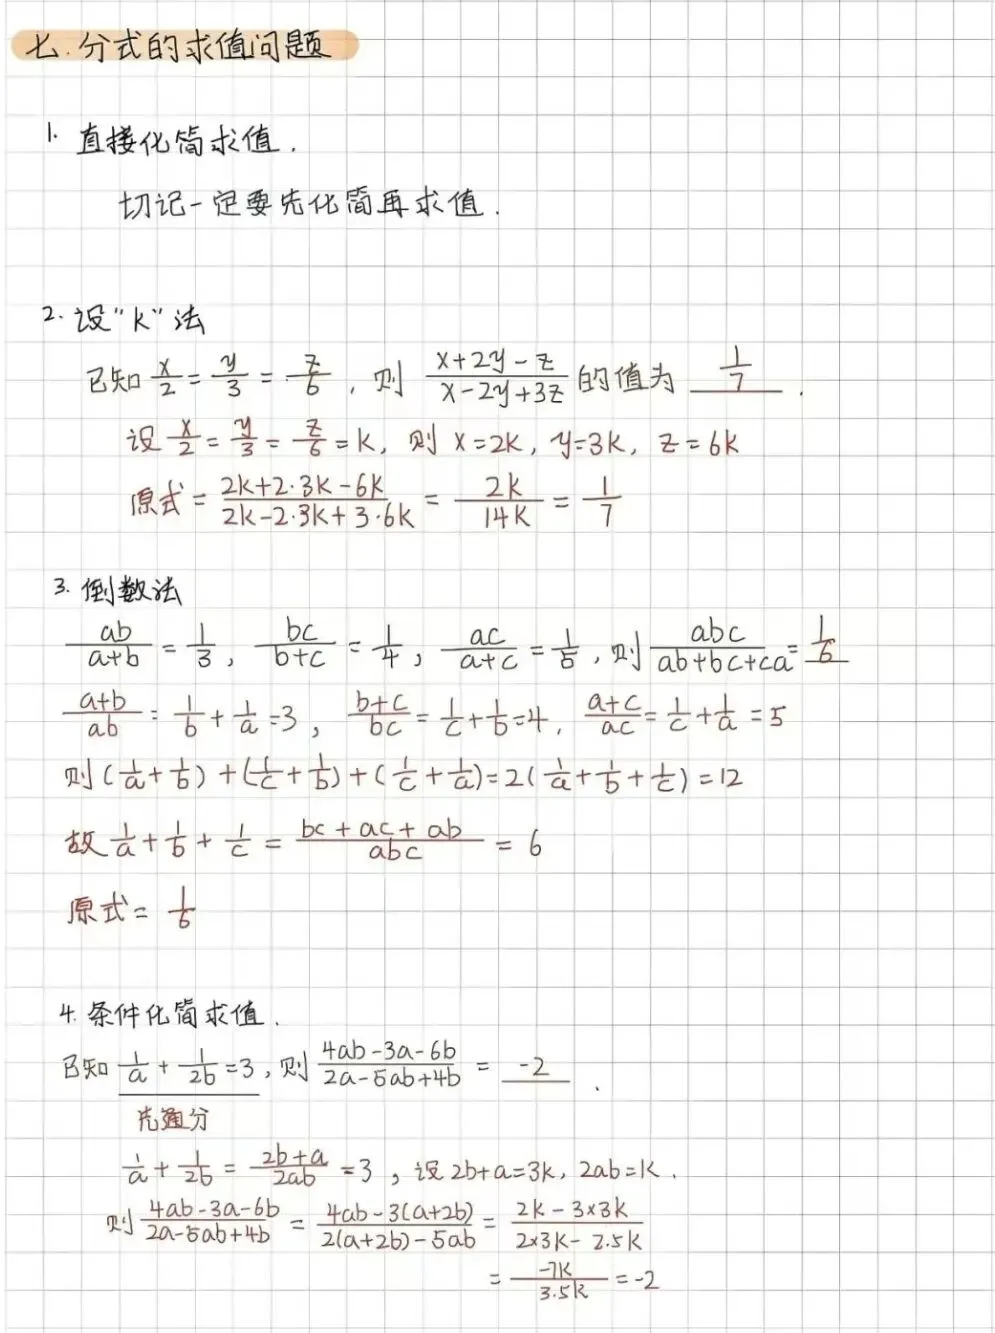 七.分式的求值问题
1. 直接化简求值.
切记一定要先化简再求值.
2. 设"k"法
已知 x/2 = y/3 = z/6, 则 (x+2y-z)/(x-2y+3z) 的值为 1/7.
设 x/2 = y/3 = z/6 = k, 则 x=2k, y=3k, z=6k
原式 = (2k+2·3k-6k)/(2k-2·3k+3·6k) = 2k/14k = 1/7
3. 倒数法
ab/(a+b) = 1/3, bc/(b+c) = 1/4, ac/(a+c) = 1/5, 则 abc/(ab+bc+ca) = 1/6
(a+b)/ab = 1/b + 1/a = 3, (b+c)/bc = 1/c + 1/b = 4, (a+c)/ac = 1/c + 1/a = 5
则 (1/a + 1/b) + (1/c + 1/b) + (1/c + 1/a) = 2(1/a + 1/b + 1/c) = 12
故 1/a + 1/b + 1/c = (bc+ac+ab)/abc = 6
原式 = 1/6
4. 条件化简求值.
已知 1/a + 1/2b = 3, 则 (4ab-3a-6b)/(2a-5ab+4b) = -2.
先通分
1/a + 1/2b = (2b+a)/2ab = 3, 设 2b+a=3k, 2ab=k.
则 (4ab-3a-6b)/(2a-5ab+4b) = (4ab-3(a+2b))/(2(a+2b)-5ab) = (2k-3×3k)/(2×3k-2.5k)
= -7k/3.5k = -2